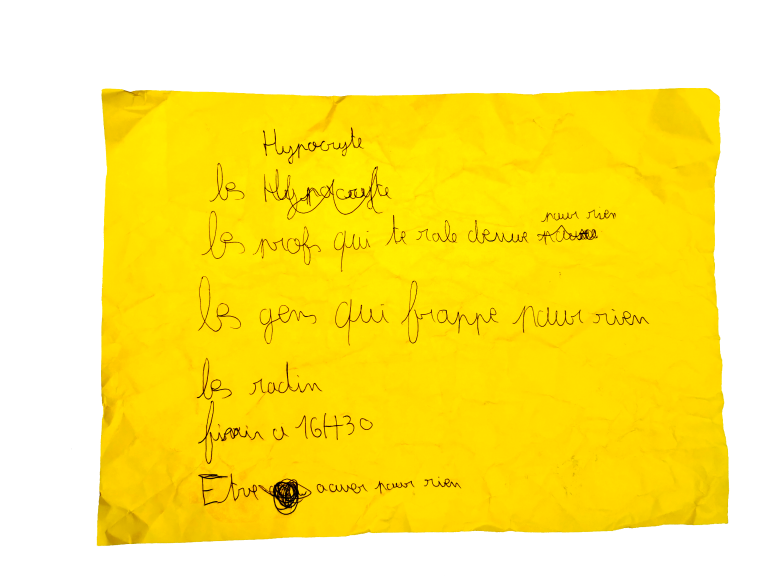 Hypocryte
les Hypocryte
les profs qui te rale denue pour rien
les gens qui frappe pour rien
les radin
finir a 16H30
Etre acuser pour rien